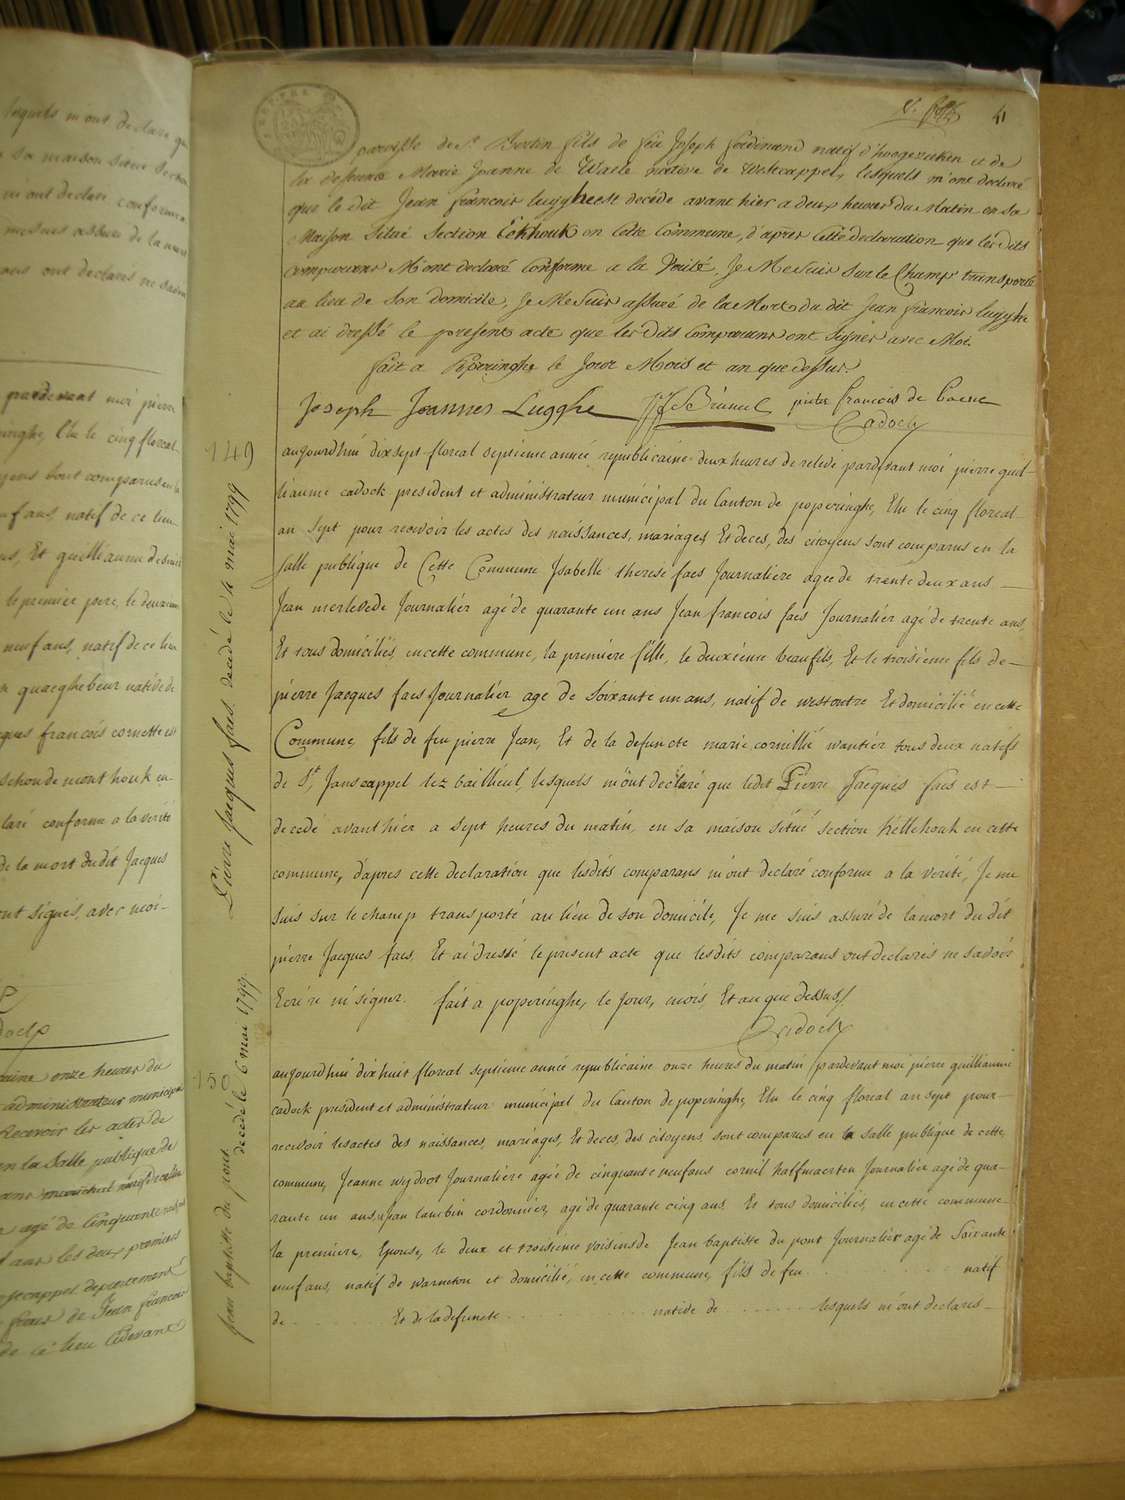 lesquels m'ont declare
sa maison
m'ont declaré conforme
assuré de la mort
ont declarés ne savoir
pardevant moi pierre
Elu le cinq floreal
sont comparus en la
natif de ce lieu
Et guilliaume
le premier pere, le deuxieme
neuf ans, natif de ce lieu
quaeghebeur native de
francois cornette est
section de mont houk en
declaré conforme a la verité
de la mort du dit Jacques
ont signés, avec moi
onze heures du
administrateur municipal
Recevoir les actes de
en la Salle publique de
agé de Cinquante
ans les deux premiers
frere de Jean francois
de ce lieu
4
paroisse de St Bertin fils de feu Joseph ferdinand natif d'hoogezieken et de
la defunte Marie Joanne de Waele native de Westcappel, lesquels m'ont declaré
que le dit Jean francois lugghe est decede avant hier a deux heures du Matin en sa
Maison Situé Section Eekhouk en Cette Commune, d'apres Cette declaration que les dits
comparans M'ont declaré Conforme a la Verité, Je Me Suis Sur le Champ transporté
au lieu de Son domicile, Je Me Suis assuré de la Mort du dit Jean francois lugghe
et ai dressé le present acte que les Dits Comparans ont Signés avec Moi.
fait a Poperinghe le Jour Mois et an que dessus.
Joseph Joannes Lugghe JF De Bruncel pieter francois de Caene
Cadock
149
Pierre Jacques faes decedé le 4 mai 1799
aujourdhui dixsept floreal septieme année republicaine deux heures de relevé pardevant moi pierre guil-
liaume cadock president et administrateur municipal du Canton de poperinghe, Elu le cinq floreal
an sept pour recevoir les actes des naissances, mariages Et deces, des citoyens sont comparus en la
salle publique de Cette Commune Isabelle therese faes Journaliere agee de trente deux ans —
Jean merlevede Journalier agé de quarante un ans Jean francois faes Journalier agé de trente ans,
Et tous domiciliés, en cette commune, la premiere fille, le deuxieme beaufils, Et le troisieme fils de —
pierre Jacques faes Journalier age de soixante un ans, natif de westoutre Et domicilié en cette
Commune, fils de feu pierre Jean, Et de la defuncte marie cornillie wantier tous deux natifs
de St Janscappel lez bailleul, lesquels m'ont declaré que ledit Pierre Jacques faes est —
decedé avant hier a sept heures du matin, en sa maison situé section hellehouk en cette
commune, d'apres cette declaration que lesdits comparans m'ont declaré conforme a la verité, Je me
suis sur le champ transporté au lieu de son domicile, Je me suis assuré de la mort du dit
pierre Jacques faes, Et ai dressé le present acte que lesdits comparans ont declarés ne savoir
Ecrire ni signer. fait a poperinghe, le jour, mois, Et an que dessus.
Cadock
150
jean baptiste du pont decedé le 6 mai 1799
aujourdhui dixhuit floreal septieme année republicaine onze heures du matin pardevant moi pierre guilliaume
cadock president et administrateur municipal du Canton de poperinghe, Elu le cinq floreal an sept pour —
recevoir les actes des naissances, mariages, Et deces, des citoyens, sont comparus en la salle publique de cette
commune, Jeanne wydoot Journaliere agée de cinquante neuf ans cornil halfmaerten Journalier agé de qua-
rante un ans, jean lambin cordonnier, agé de quarante cinq ans. Et tous domiciliés, en cette commune
la premiere, Epouse, le deux et troisieme voisins de Jean baptiste du pont Journalier agé de Soixante
neuf ans, natif de warneton et domicilié, en cette commune, fils de feu . . . . . . . . natif
de . . . . . . . Et de la defuncte . . . . . . . . native de . . . . . . . lesquels m'ont declarés —